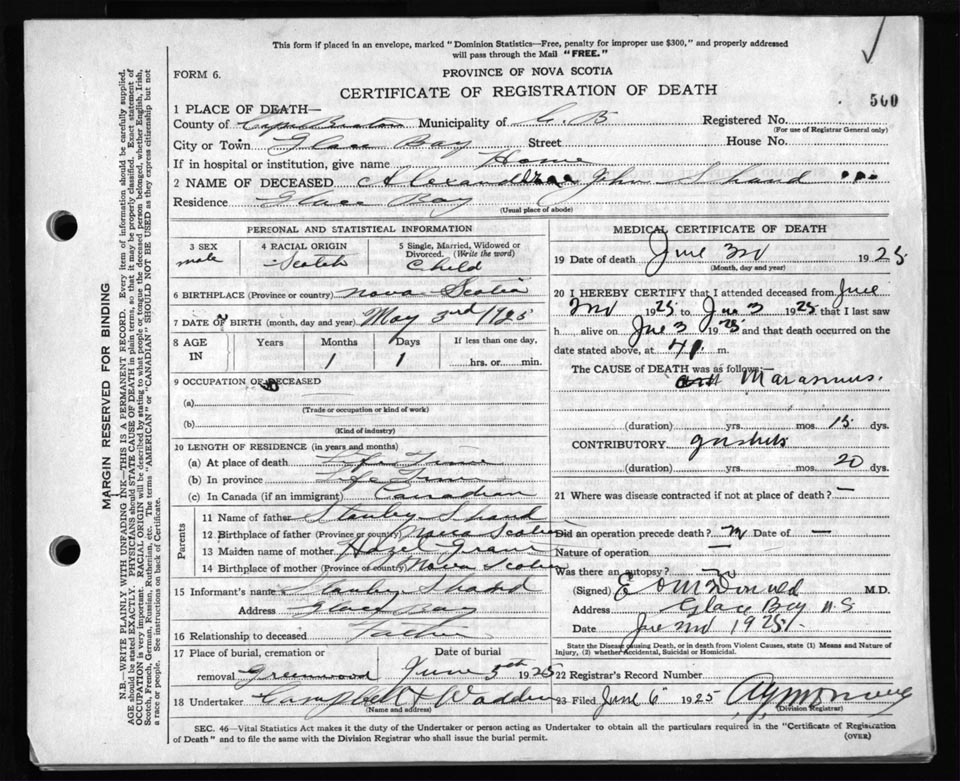 This form if placed in an envelope, marked "Dominion Statistics—Free, penalty for improper use $300," and properly addressed
will pass through the Mail "FREE."
FORM 6.
PROVINCE OF NOVA SCOTIA
CERTIFICATE OF REGISTRATION OF DEATH
500
1 PLACE OF DEATH—
County of Cape Breton Municipality of C B Registered No.
(For use of Registrar General only)
City or Town Glace Bay Street House No.
If in hospital or institution, give name Home
2 NAME OF DECEASED Alexander John Shand
Residence Glace Bay
(Usual place of abode)
PERSONAL AND STATISTICAL INFORMATION
3 SEX
male
4 RACIAL ORIGIN
Scotch
5 Single, Married, Widowed or
Divorced. (Write the word)
Child
6 BIRTHPLACE (Province or country) Nova Scotia
7 DATE OF BIRTH (month, day and year) May 3rd 1925
8 AGE
IN
Years
Months
1
Days
1
If less than one day,
hrs. or min.
9 OCCUPATION OF DECEASED
(a)
(Trade or occupation or kind of work)
(b)
(Kind of industry)
10 LENGTH OF RESIDENCE (in years and months)
(a) At place of death Life Time
(b) In province Life Time
(c) In Canada (if an immigrant) Canadian
Parents
11 Name of father Stanley Shand
12 Birthplace of father (Province or country) Nova Scotia
13 Maiden name of mother Hazel
14 Birthplace of mother (Province or country) Nova Scotia
15 Informant's name Stanley Shand
Address Glace Bay
16 Relationship to deceased Father
17 Place of burial, cremation or
removal Greenwood
Date of burial
June 5th 1925
18 Undertaker Campbell & Wadden
(Name and address)
MEDICAL CERTIFICATE OF DEATH
19 Date of death June 3rd 1925
(Month, day and year)
20 I HEREBY CERTIFY that I attended deceased from June
2nd 1925 to June 3 1925 that I last saw
h alive on June 3 1925 and that death occurred on
date stated above, at 4 p. m.
The CAUSE of DEATH was as follows:—
Marasmus.
(duration) yrs. mos. 15 dys.
CONTRIBUTORY gastritis
(duration) yrs. mos. 20 dys.
21 Where was disease contracted if not at place of death? —
Did an operation precede death? no Date of —
Nature of operation —
Was there an autopsy?
(Signed) M.D.
Address Glace Bay N.S
Date June 1925
State the Disease causing Death, or in death from Violent Causes, state (1) Means and Nature of
Injury, (2) whether Accidental, Suicidal or Homicidal.
22 Registrar's Record Number
23 Filed June 6 1925
(Division Registrar)
SEC. 46—Vital Statistics Act makes it the duty of the Undertaker or person acting as Undertaker to obtain all the particulars required in the "Certificate of Registration
of Death" and to file the same with the Division Registrar who shall issue the burial permit.
(OVER)
MARGIN RESERVED FOR BINDING
N.B.—WRITE PLAINLY WITH UNFADING INK—THIS IS A PERMANENT RECORD. Every item of information should be carefully supplied.
AGE should be stated EXACTLY. PHYSICIANS should STATE CAUSE OF DEATH in plain terms, so that it may be properly classified. Exact statement of
OCCUPATION is very important. RACIAL ORIGIN will be described by stating to what people or tongue the deceased person belonged, whether English, Irish,
Scotch, French, German, Russian, Ruthenian, etc. The terms "AMERICAN" or "CANADIAN" SHOULD NOT BE USED as they express citizenship but not
a race or people. See instructions on back of Certificate.